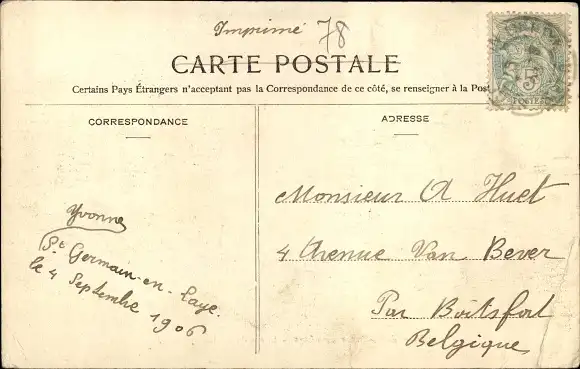 Imprimé 78
CARTE POSTALE
Certains Pays Étrangers n'acceptent pas la Correspondance de ce côté, se renseigner à la Post
CORRESPONDANCE
ADRESSE
5
POSTES
Yvonne
St Germain-en-Laye.
le 4 Septembre 1906
Monsieur A Huet
4 Avenue Van Bever
Par Boitsfort
Belgique